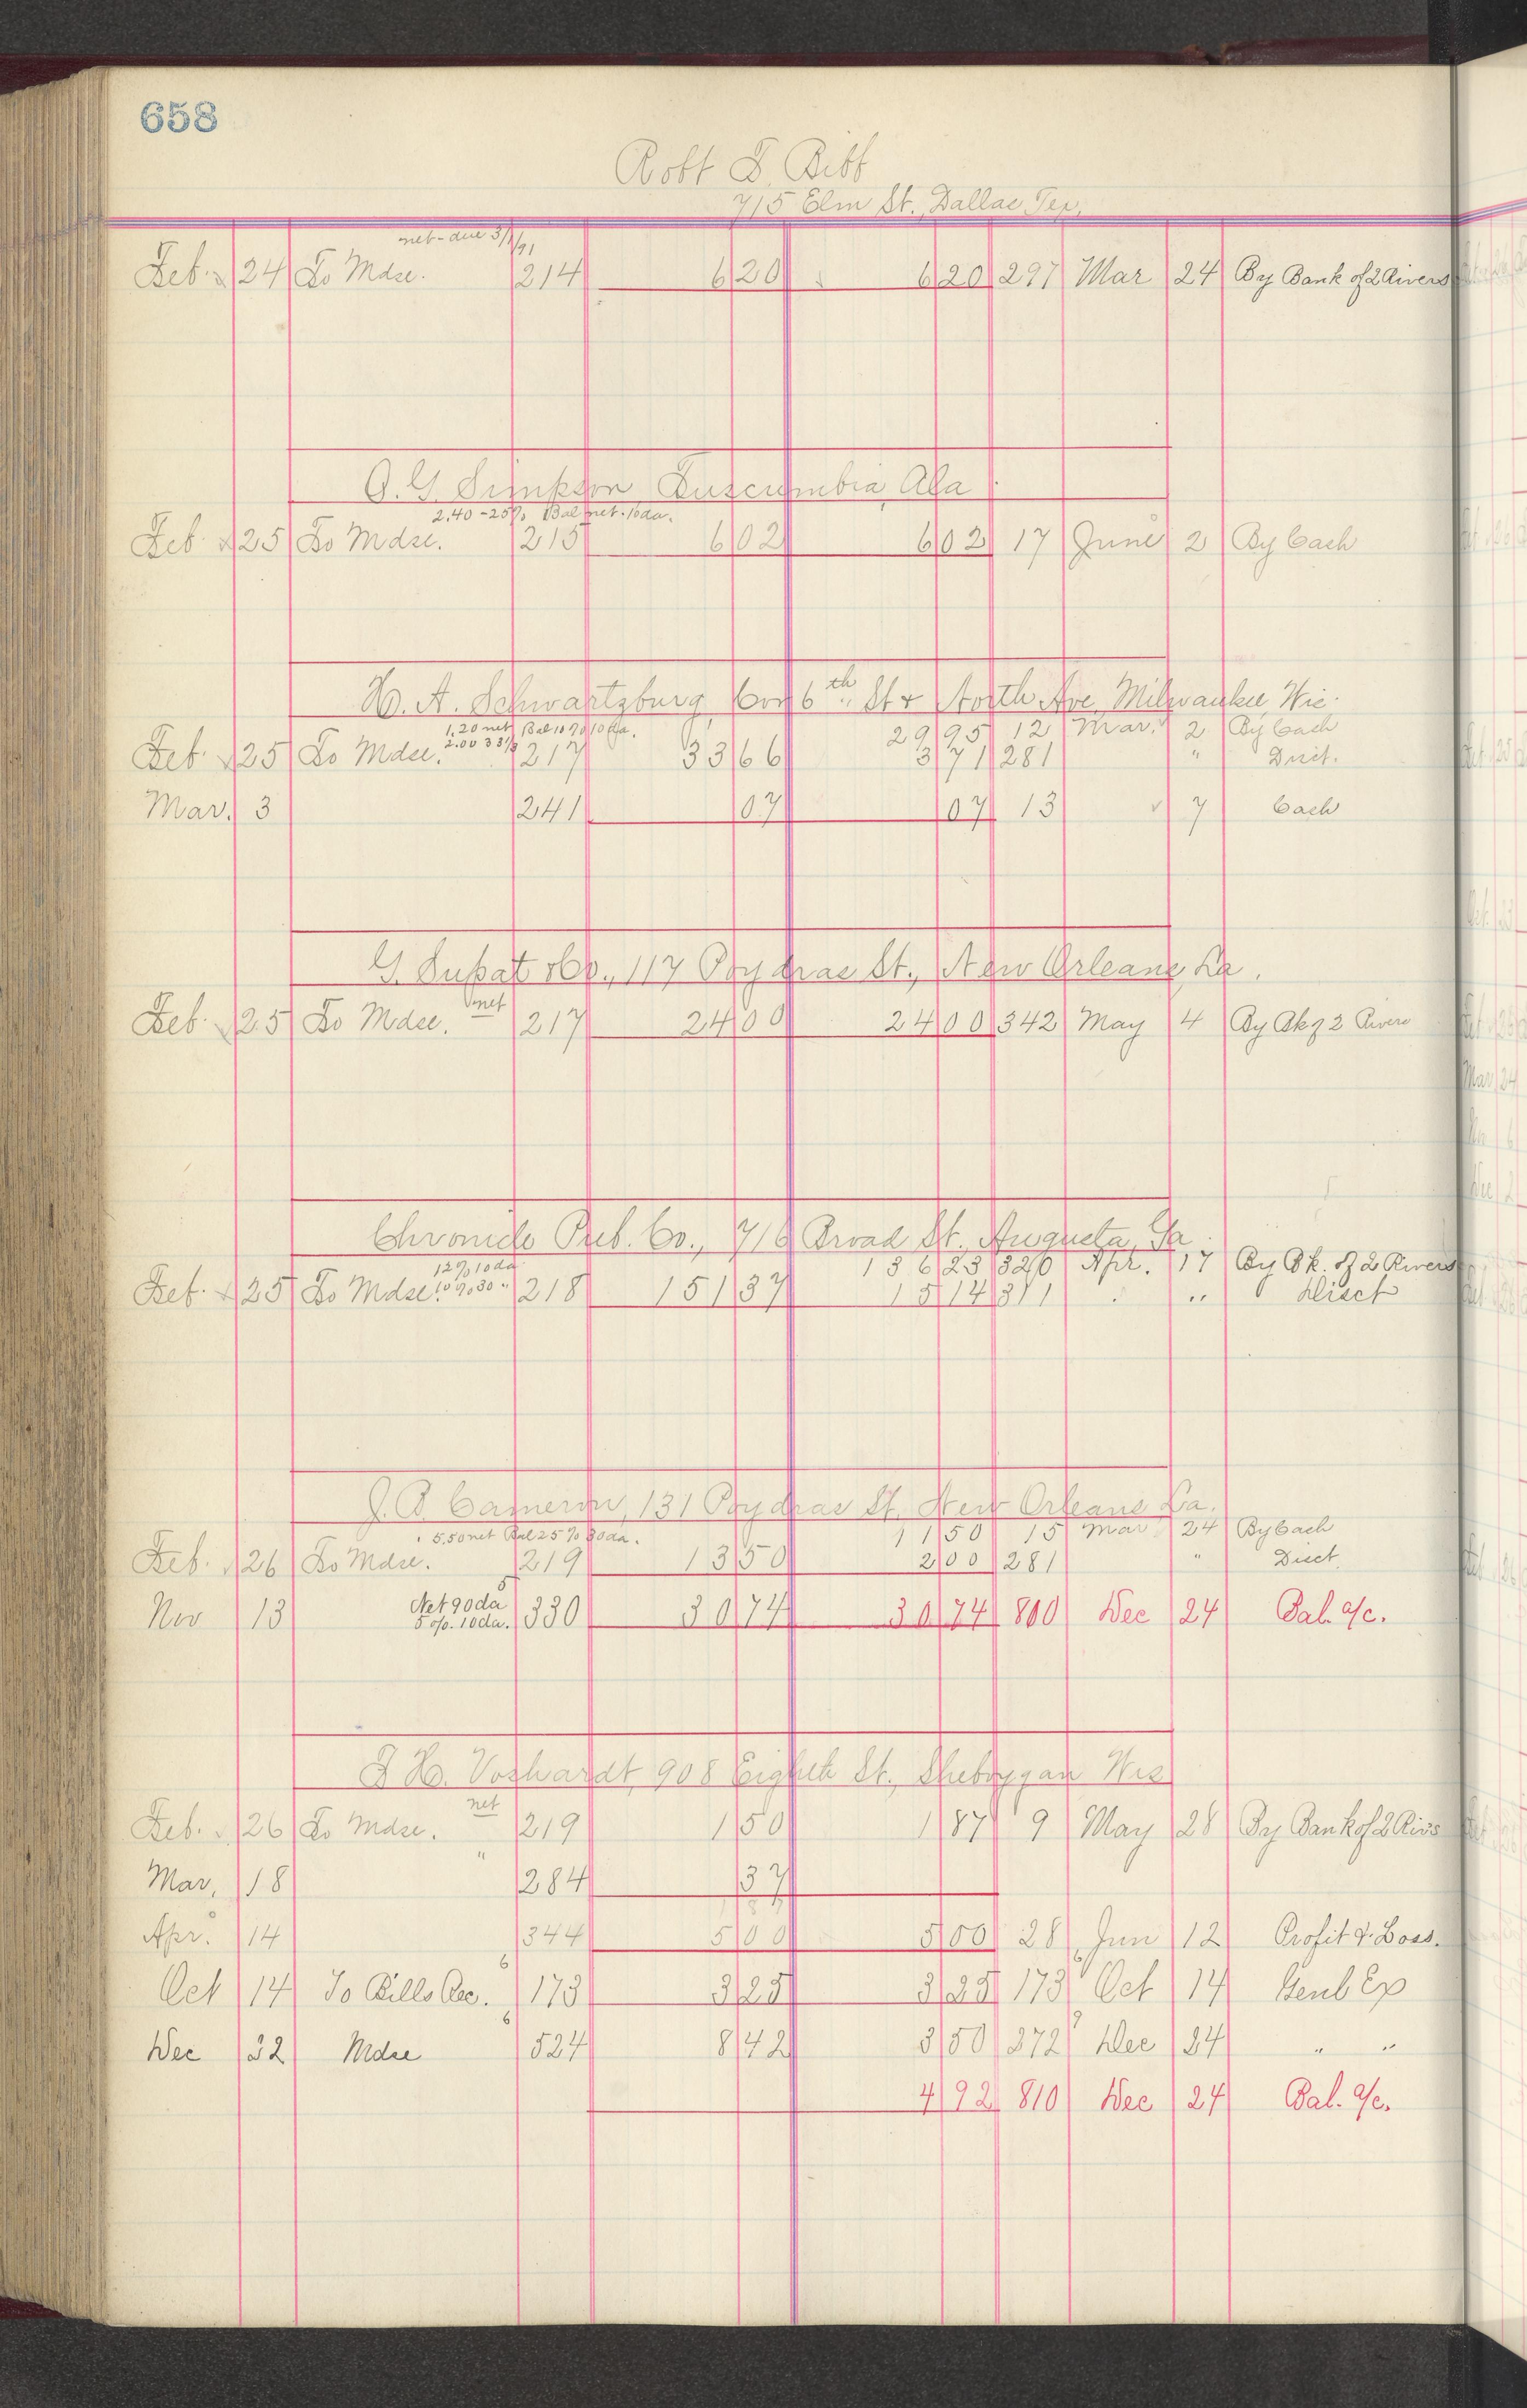 658
Robt S. Bibb
715 Elm St., Dallas Tex.
net - due 3/1/91
Feb. 24 To Mdse. 214 6 20 6 20 297 Mar 24 By Bank of 2 Rivers
O. G. Simpson, Tuscumbia, Ala.
2.40 - 25% Bal net. 10 da.
Feb 25 To Mdse. 215 6 02 6 02 17 June 2 By Cash
H. A. Schwartzburg, Cor 6th St & North Ave, Milwaukee, Wis.
1.20 net Bal 10% 10 da. 29 95 12 Mar. 2 By Cash
2.00 33 1/3
Feb. 25 To Mdse. 217 33 66 3 71 281 " Disct.
Mar. 3 241 07 07 13 7 Cash
G. Supat & Co., 117 Poydras St., New Orleans, La.
net
Feb. 25 To Mdse. 217 24 00 24 00 342 May 4 By Bk of 2 Rivers
Chronicle Pub. Co., 716 Broad St. Augusta, Ga.
12% 10 da 136 23 320 Apr. 17 By Bk. of 2 Rivers
Feb. 25 To Mdse. 10% 30 " 218 151 37 15 14 311 " Disct
J. A. Cameron, 131 Poydras St, New Orleans La.
5.50 net Bal 25% 30 da. 11 50 15 Mar 24 By Cash
Feb. 26 To Mdse. 219 13 50 2 00 281 " Disct.
Nov 13 Net 90 da 5 330 30 74 30 74 800 Dec 24 Bal. a/c.
5 %. 10 da.
F H. Voshardt, 908 Eighth St., Sheboygan Wis
net
Feb. 26 To Mdse. 219 1 50 1 87 9 May 28 By Bank of 2 Rivs
"
Mar. 18 284 37
Apr. 14 344 5 00 5 00 28 Jun 12 Profit & Loss.
Oct 14 To Bills Rec. 6 173 3 25 3 25 173 6 Oct 14 Genl Ex
Dec 22 Mdse 6 524 8 42 3 50 372 9 Dec 24 " "
4 92 810 Dec 24 Bal. a/c.